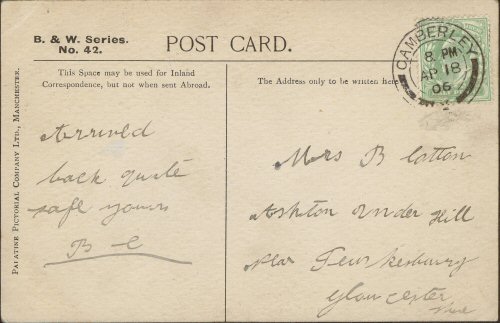 B. & W. Series.
No. 42.
POST CARD.
This Space may be used for Inland
Correspondence, but not when sent Abroad.
The Address only to be written here
PALATINE PICTORIAL COMPANY LTD., MANCHESTER.
CAMBERLEY
8. PM
AP 18
06
Arrived
back quite
safe yours
B C
Mrs B Cotton
Ashton Under Hill
Near Tewkesbury
Gloucester